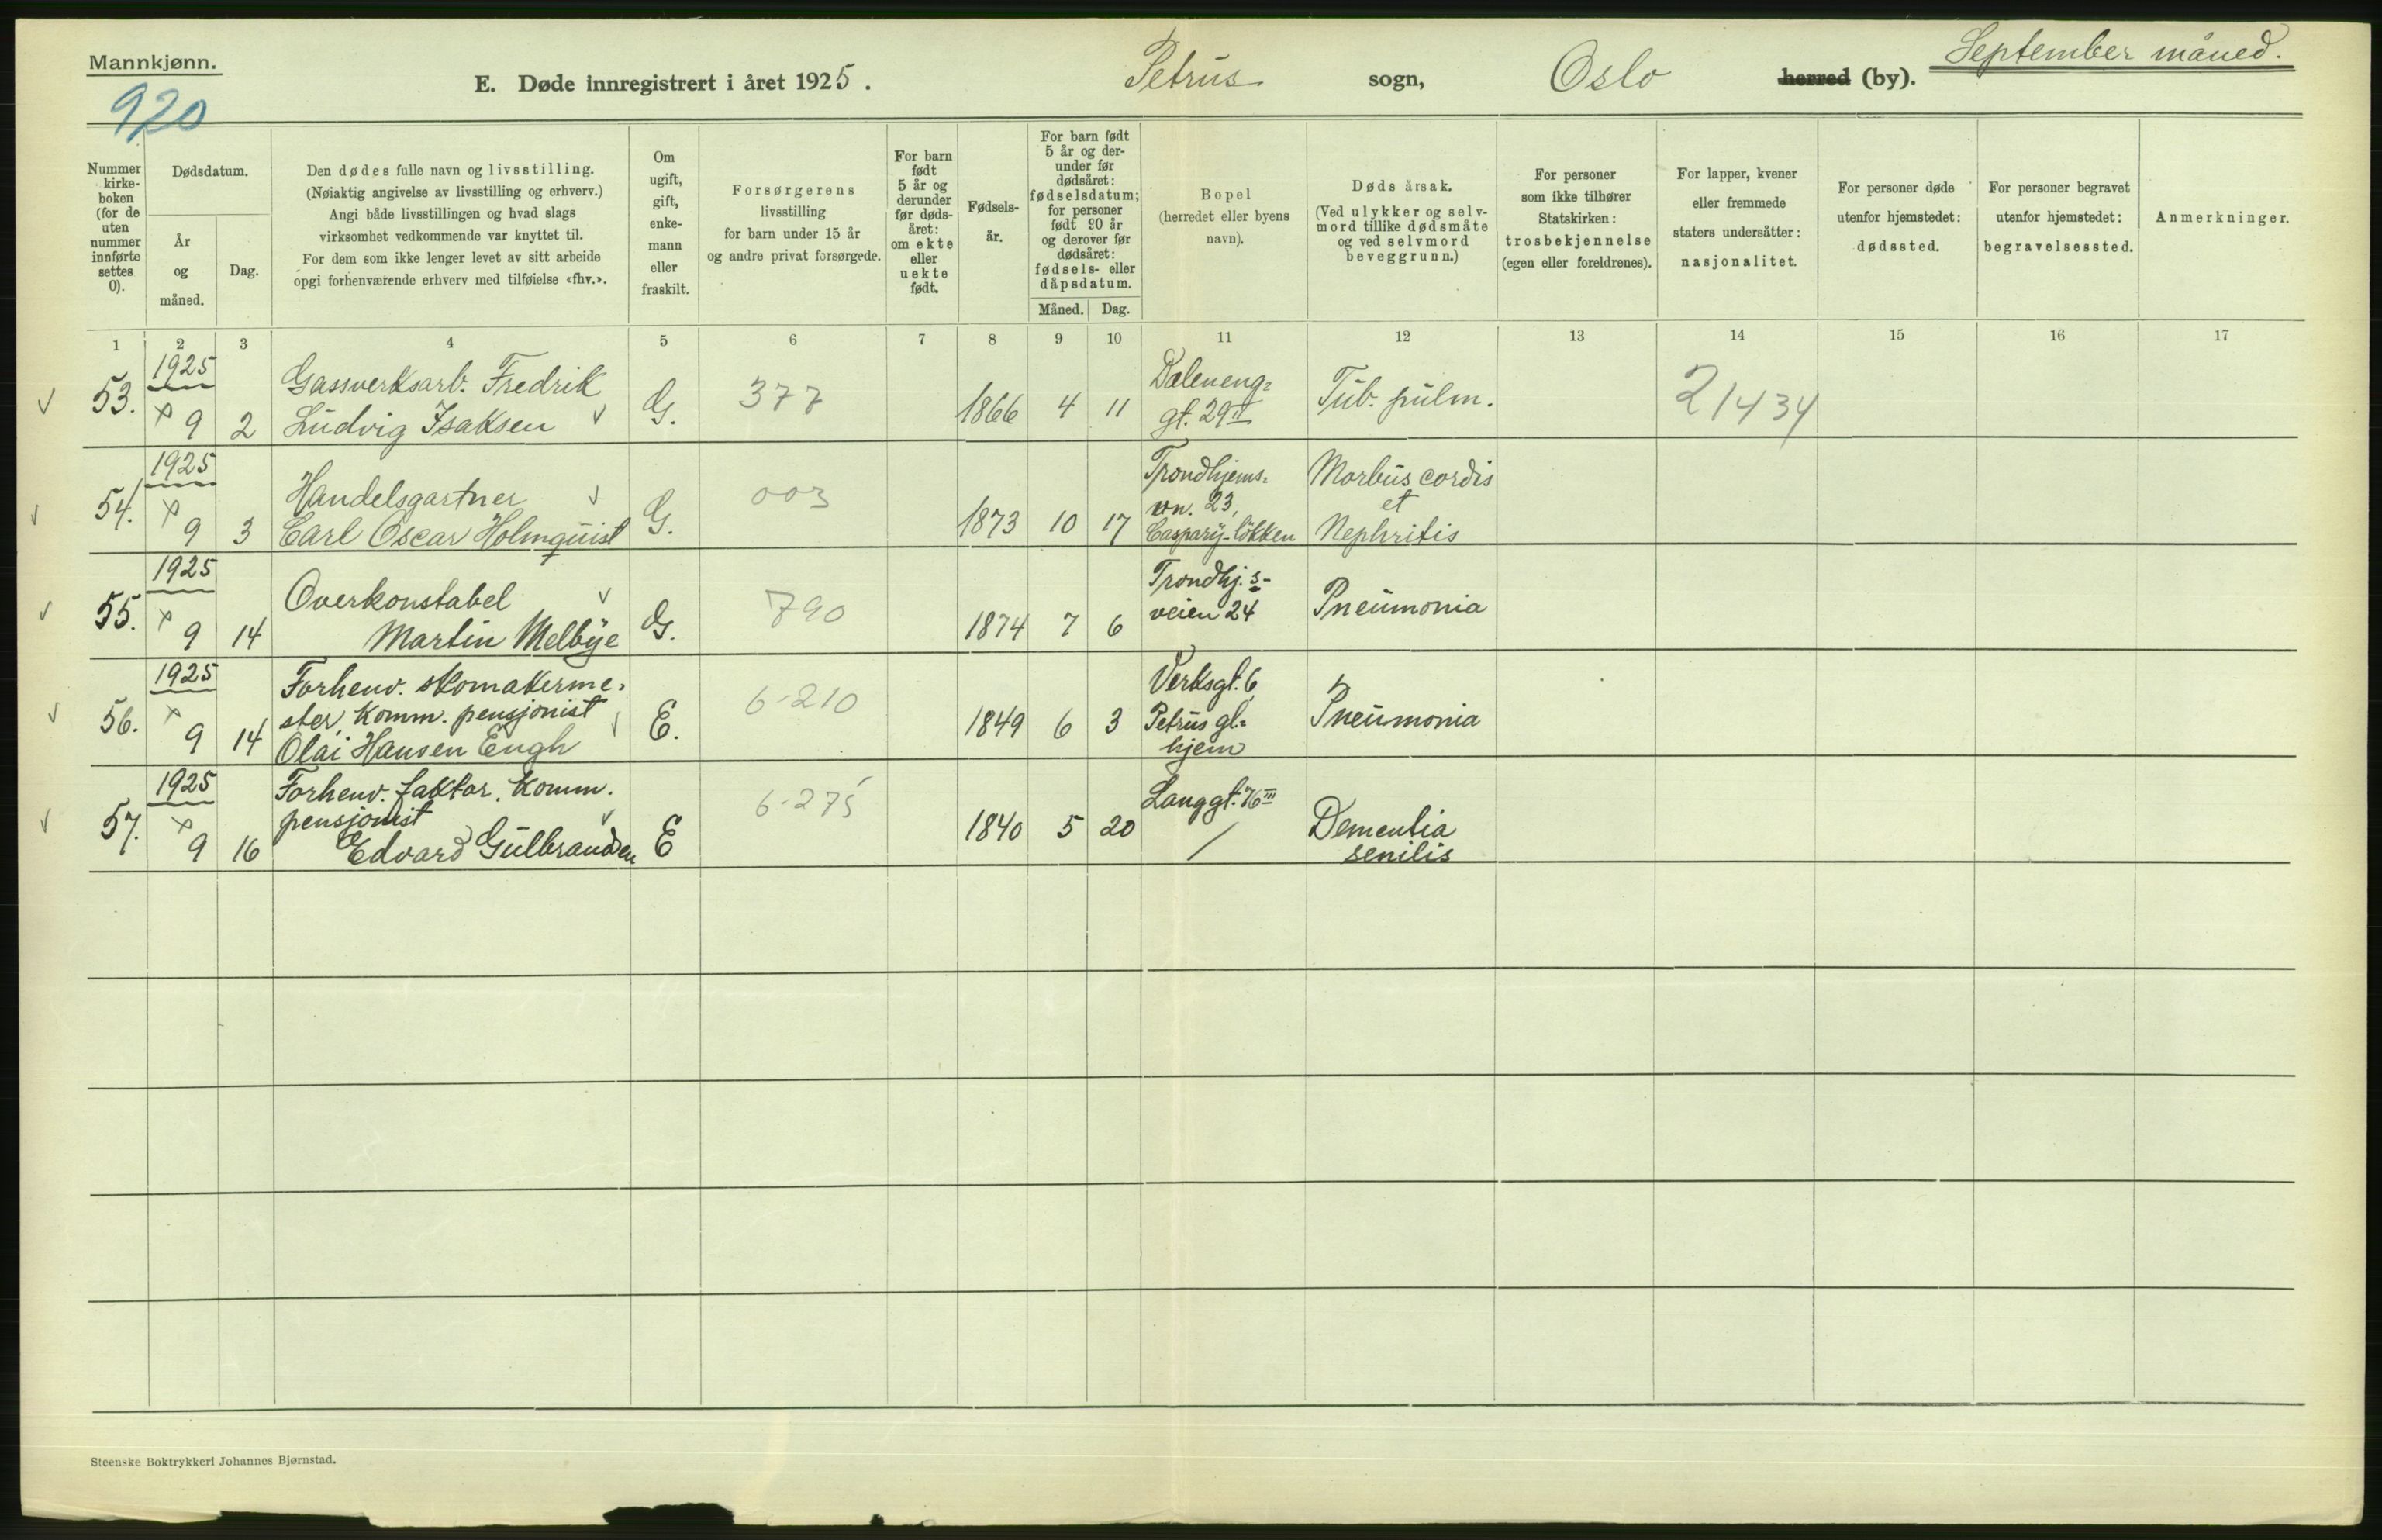 Mannkjønn.
920
E. Døde innregistrert i året 1925.
Petrus sogn, Oslo herred (by).
September måned.
Nummer kirke-boken (for de uten nummer innførte settes 0).
Dødsdatum.
År og måned.
Dag.
Den dødes fulle navn og livsstilling.
(Nøiaktig angivelse av livsstilling og erhverv.)
Angi både livsstillingen og hvad slags
virksomhet vedkommende var knyttet til.
For dem som ikke lenger levet av sitt arbeide
opgi forhenværende erhverv med tilføielse «fhv.».
Om ugift, gift, enke-mann eller fraskilt.
Forsørgerens
livsstilling
for barn under 15 år
og andre privat forsørgede.
For barn født 5 år og derunder før døds-året: om ekte eller uekte født.
Fødsels-år.
For barn født 5 år og der-under før dødsåret: fødselsdatum; for personer født 90 år og derover før dødsåret: fødsels- eller dåpsdatum.
Måned. Dag.
Bopel
(herredet eller byens
navn).
Dødsårsak.
(Ved ulykker og selv-
mord tillike dødsmåte
og ved selvmord
beveggrunn.)
For personer
som ikke tilhører
Statskirken:
trosbekjennelse
(egen eller foreldrenes).
For lapper, kvener
eller fremmede
staters undersåtter:
nasjonalitet.
For personer døde
utenfor hjemstedet:
dødssted.
For personer begravet
utenfor hjemstedet:
begravelsessted.
Anmerkninger.
1 2 3 4 5 6 7 8 9 10 11 12 13 14 15 16 17
53. 1925 9 2
Gassverksarb. Fredrik
Ludvig Isaksen
G. 377 1866 4 11
Dæleneng=
gt. 29 II
Tub. pulm.
21434
54. 1925 9 3
Handelsgartner
Carl Oscar Holmquist
G. 003 1873 10 17
Trondhjems=
vn. 23,
Caspary-løkken
Morbus cordis
et
Nephritis
55. 1925 9 14
Overkonstabel
Martin Melbye
G. 790 1874 7 6
Trondhj.s-
veien 24
Pneumonia
56. 1925 9 14
Forhenv. skomakerme-
ster, komm. pensjonist
Olai Hansen Engh
E. 6-210 1849 6 3
Verksgt. 6
Petrus gl=
hjem
Pneumonia
57. 1925 9 16
Forhenv. faktor, komm.
pensjonist
Edvard Gulbrandsen
E 6-275 1840 5 20
Langgt. 76 III
Dementia
senilis
Steenske Boktrykkeri Johannes Bjørnstad.